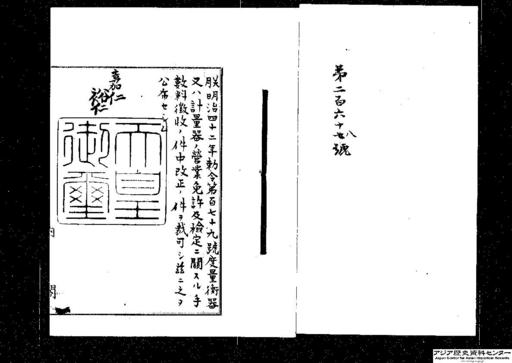 第二百六十八號
朕明治四十二年勅令第百七十九號度量衡器
又ハ計量器ノ營業免許及檢定ニ關スル手
數料徴收ノ件中改正ノ件ヲ裁可シ茲ニ之ヲ
公布セシム
嘉仁
裕仁
天皇御璽
内 閣
アジア歴史資料センター
Japan Center for Asian Historical Records